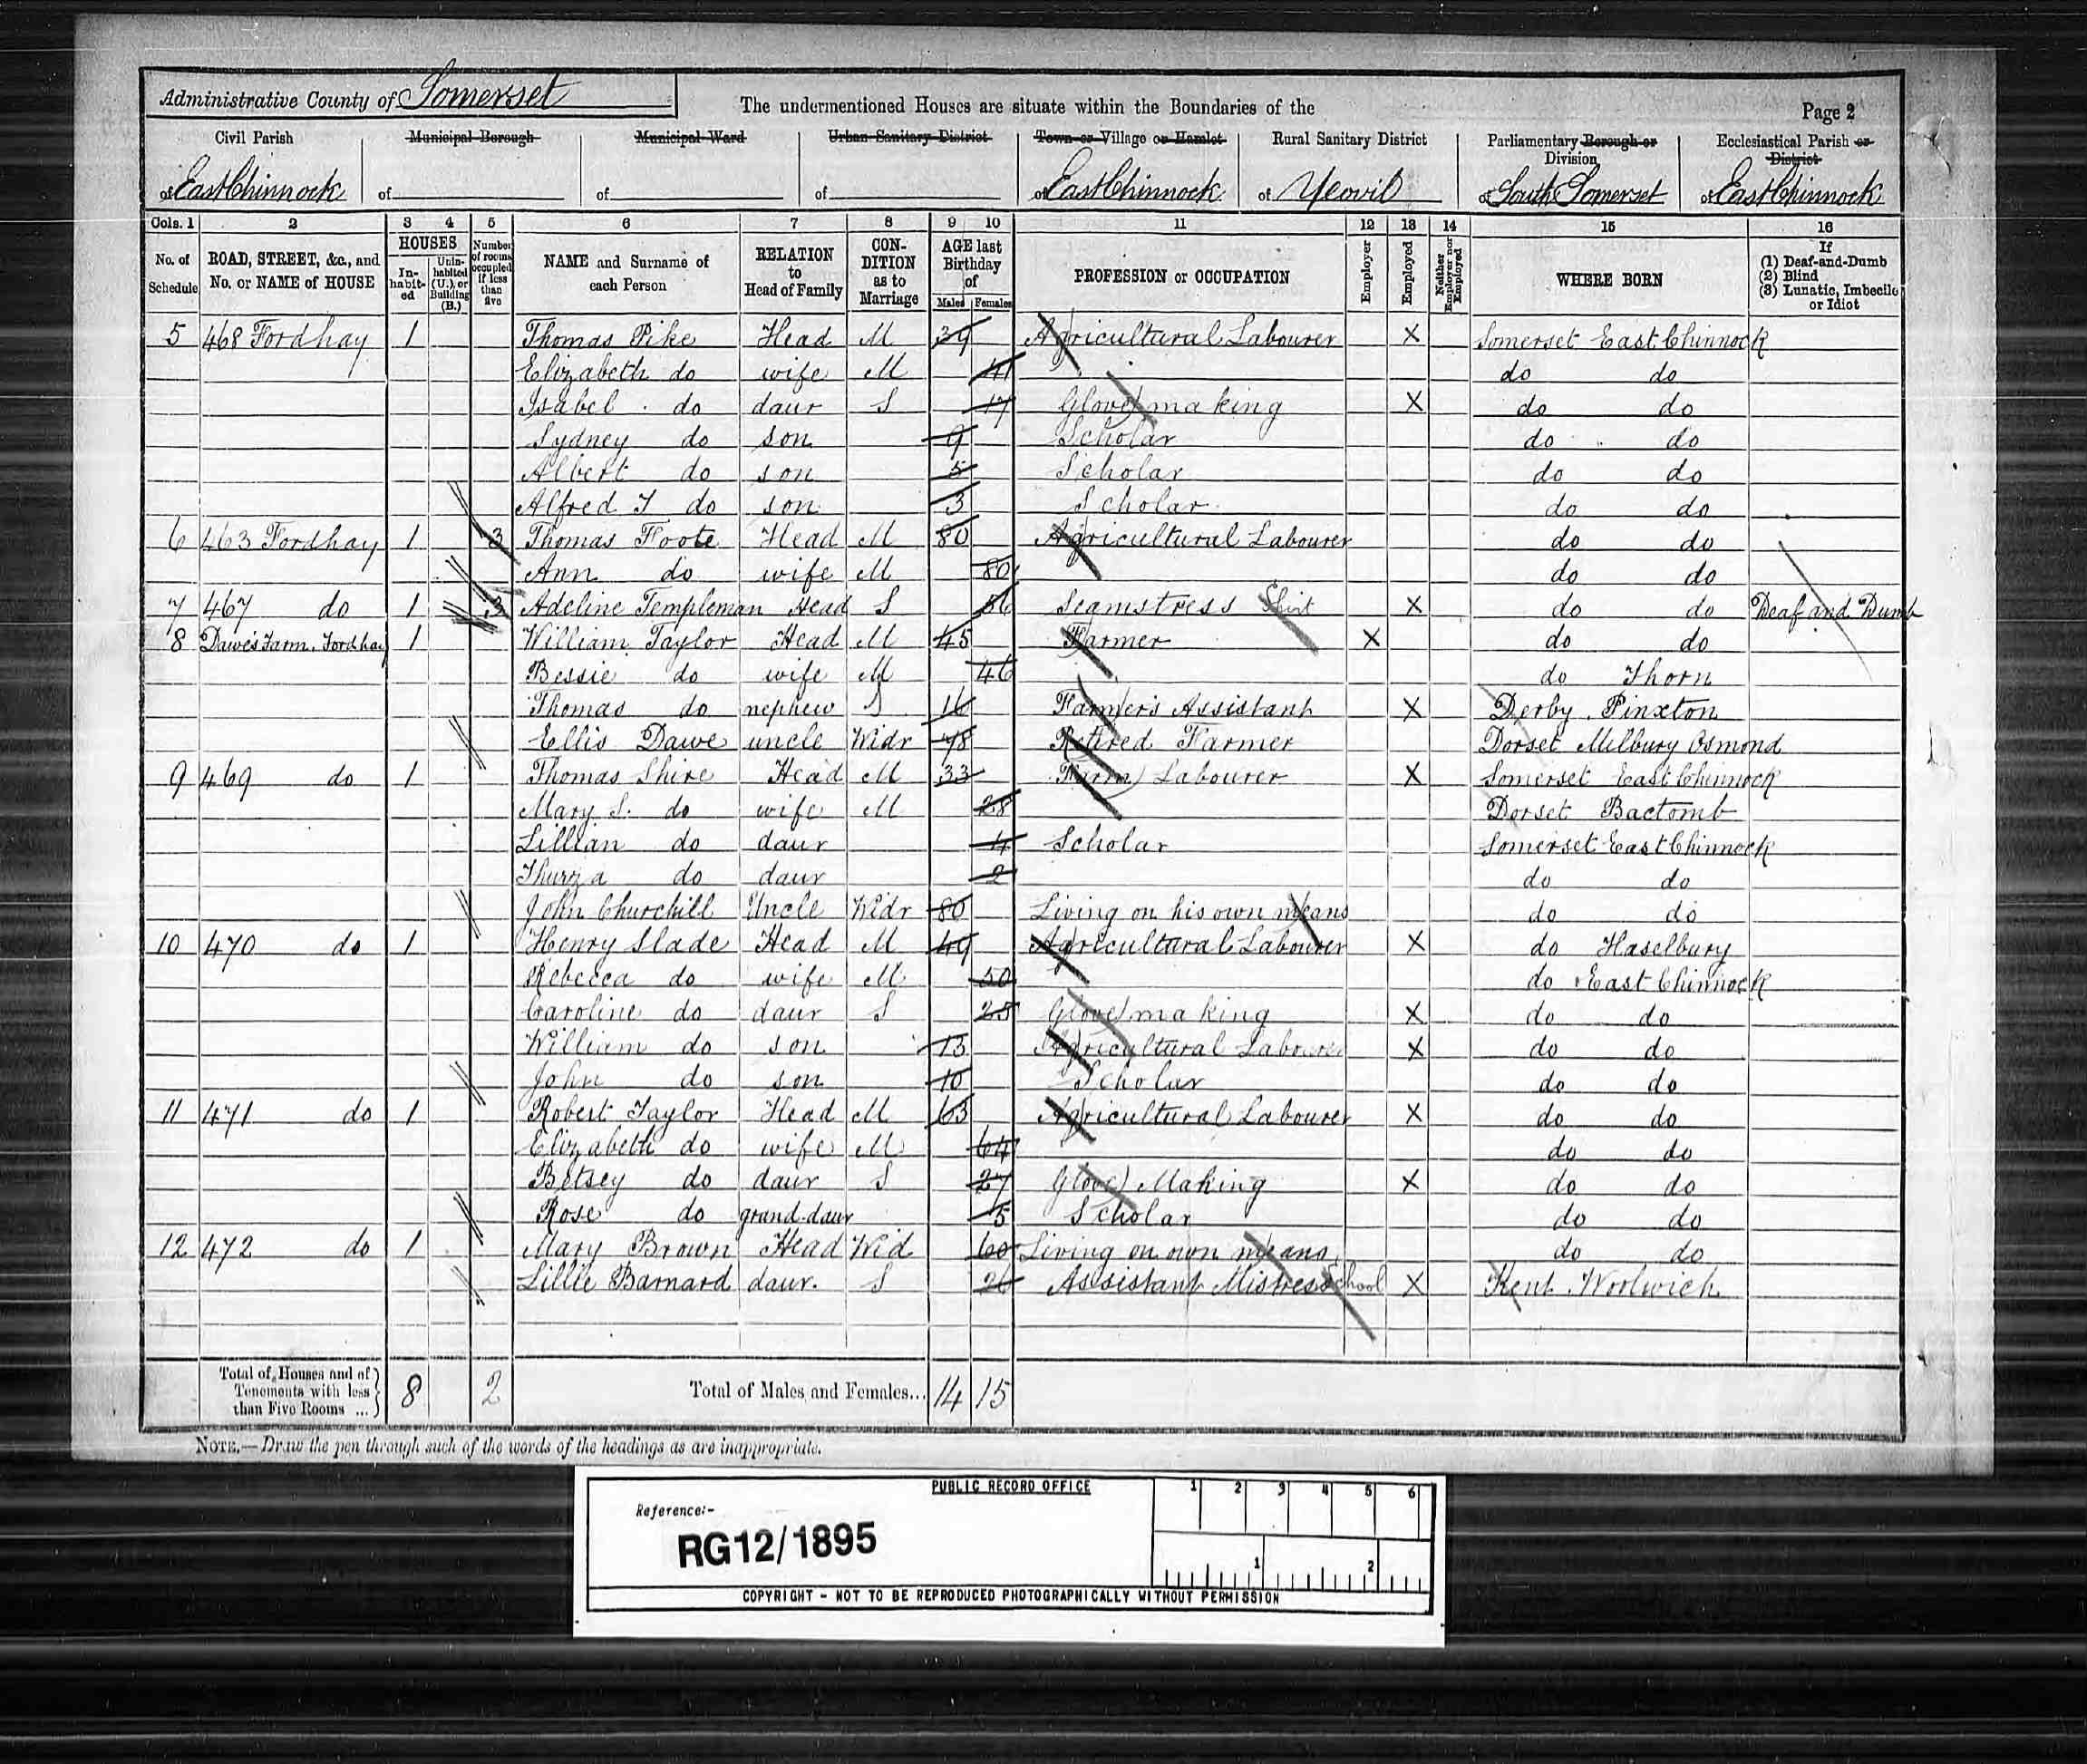 Administrative County of Somerset
The undermentioned Houses are situate within the Boundaries of the
Page 2
Civil Parish of East Chinnock
Municipal Borough of
Municipal Ward of
Urban Sanitary District of
Town or Village or Hamlet of East Chinnock
Rural Sanitary District of Yeovil
Parliamentary Borough or Division of South Somerset
Ecclesiastical Parish or District of East Chinnock
Cols. 1 2 3 4 5 6 7 8 9 10 11 12 13 14 15 16
No. of Schedule
ROAD, STREET, &c., and No. or NAME of HOUSE
HOUSES
In-habit-ed
Unin-habited (U.), or Building (B.)
Number of rooms occupied if less than five
NAME and Surname of each Person
RELATION to Head of Family
CON-DITION as to Marriage
AGE last Birthday of
Males Females
PROFESSION or OCCUPATION
Employer
Employed
Neither Employer nor Employed
WHERE BORN
If (1) Deaf-and-Dumb (2) Blind (3) Lunatic, Imbecile or Idiot
5 468 Fordhay 1 Thomas Pike Head M 39 Agricultural Labourer X Somerset East Chinnock
Elizabeth do wife M 41 do do
Isabel do daur S 17 Glove making X do do
Sydney do son 9 Scholar do do
Albert do son 5 Scholar do do
Alfred J do son 3 Scholar do do
6 463 Fordhay 1 3 Thomas Foote Head M 80 Agricultural Labourer do do
Ann do wife M 80 do do
7 467 do 1 3 Adeline Templeman Head S 56 Seamstress Shirt X do do Deaf and Dumb
8 Dawe's Farm. Fordhay 1 William Taylor Head M 45 Farmer X do do
Bessie do wife M 46 do Thorn
Thomas do nephew S 16 Farmer's Assistant X Derby Pinxton
Ellis Dawe uncle Widr 78 Retired Farmer Dorset Melbury Osmond
9 469 do 1 Thomas Shire Head M 33 Farm Labourer X Somerset East Chinnock
Mary S. do wife M 28 Dorset Bactomb
Lillian do daur 4 Scholar Somerset East Chinnock
Thurza do daur 2 do do
John Churchill Uncle Widr 80 Living on his own means do do
10 470 do 1 Henry Slade Head M 49 Agricultural Labourer X do Haselbury
Rebecca do wife M 50 do East Chinnock
Caroline do daur S 25 Glove making X do do
William do son 13 Agricultural Labourer X do do
John do son 10 Scholar do do
11 471 do 1 Robert Taylor Head M 63 Agricultural Labourer X do do
Elizabeth do wife M 64 do do
Betsey do daur S 27 Glove Making X do do
Rose do grand-daur 5 Scholar do do
12 472 do 1 Mary Brown Head Wid 60 Living on own means do do
Lillie Barnard daur. S 26 Assistant Mistress School X Kent Woolwich
Total of Houses and of Tenements with less than Five Rooms ... 8 2
Total of Males and Females... 14 15
NOTE.—Draw the pen through such of the words of the headings as are inappropriate.
PUBLIC RECORD OFFICE
1 2 3 4 5 6
Reference:-
RG12/1895
1 2
COPYRIGHT - NOT TO BE REPRODUCED PHOTOGRAPHICALLY WITHOUT PERMISSION